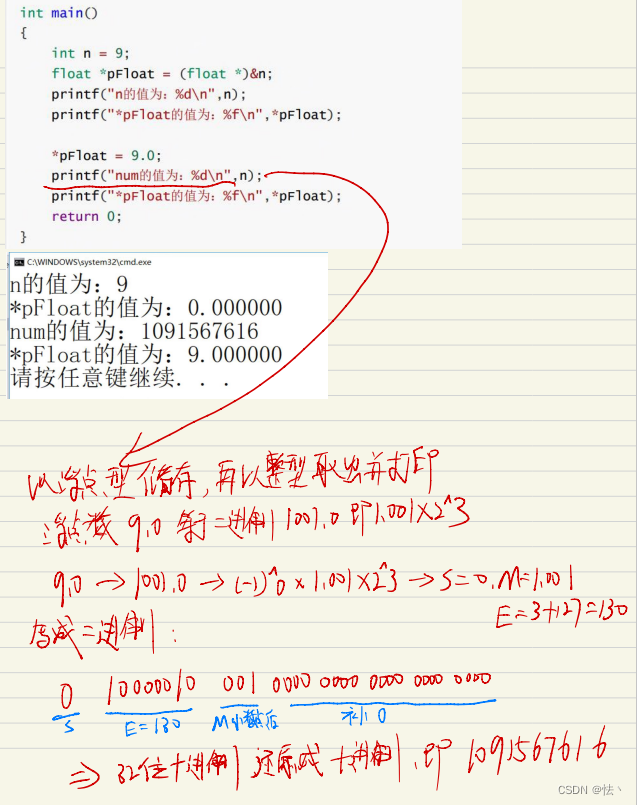 int main()
{
int n = 9;
float *pFloat = (float *)&n;
printf("n的值为：%d\n",n);
printf("*pFloat的值为：%f\n",*pFloat);
*pFloat = 9.0;
printf("num的值为：%d\n",n);
printf("*pFloat的值为：%f\n",*pFloat);
return 0;
}
C:\WINDOWS\system32\cmd.exe
n的值为：9
*pFloat的值为：0.000000
num的值为：1091567616
*pFloat的值为：9.000000
请按任意键继续. . .
以浮点型储存，再以整型取出并打印
浮点数 9.0 等于二进制 1001.0 即1.001×2^3
9.0 → 1001.0 → (-1)^0 × 1.001×2^3 → S=0, M=1.001
E=3+127=130
写成二进制：
0 10000010 001 0000 0000 0000 0000 0000
S E=130 M小数点后 补0
⇒ 32位十进制 还原成十进制，即 1091567616
CSDN @怯丶